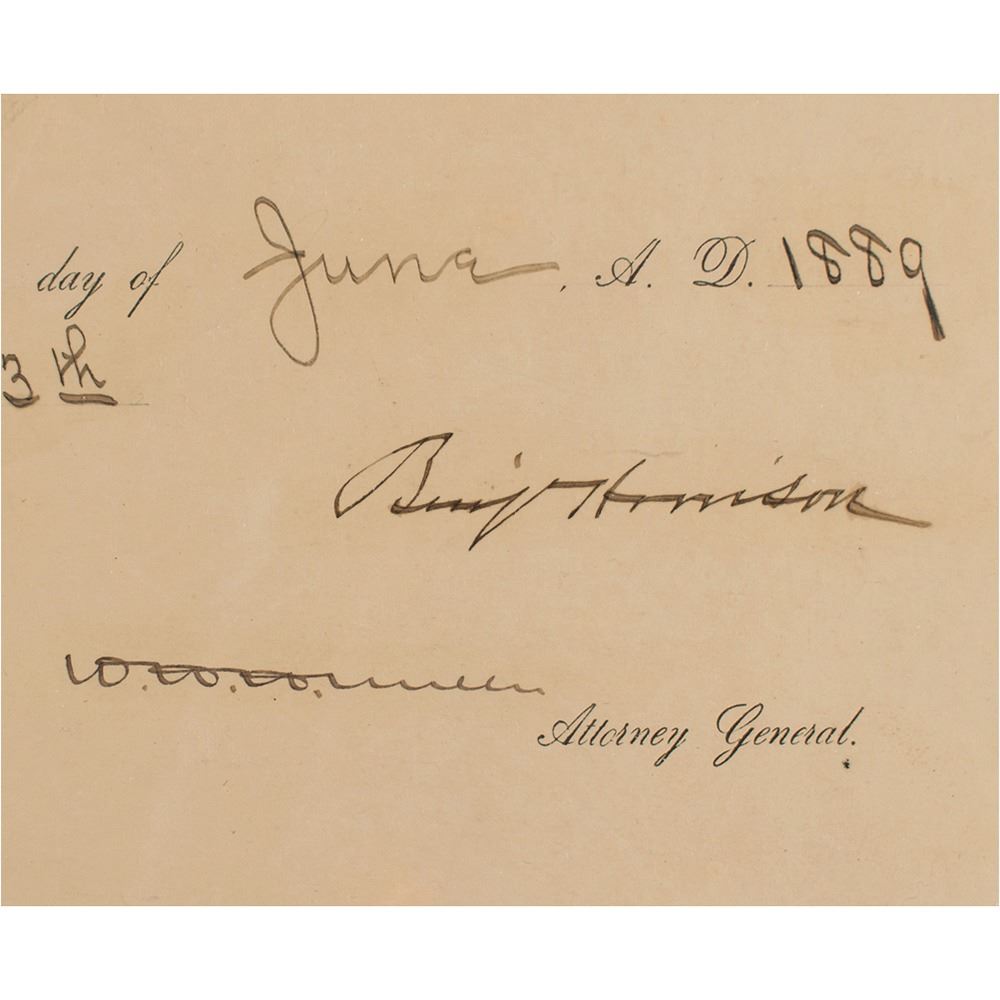 day of June, A. D. 1889
3th
Benj Harrison
Attorney General.